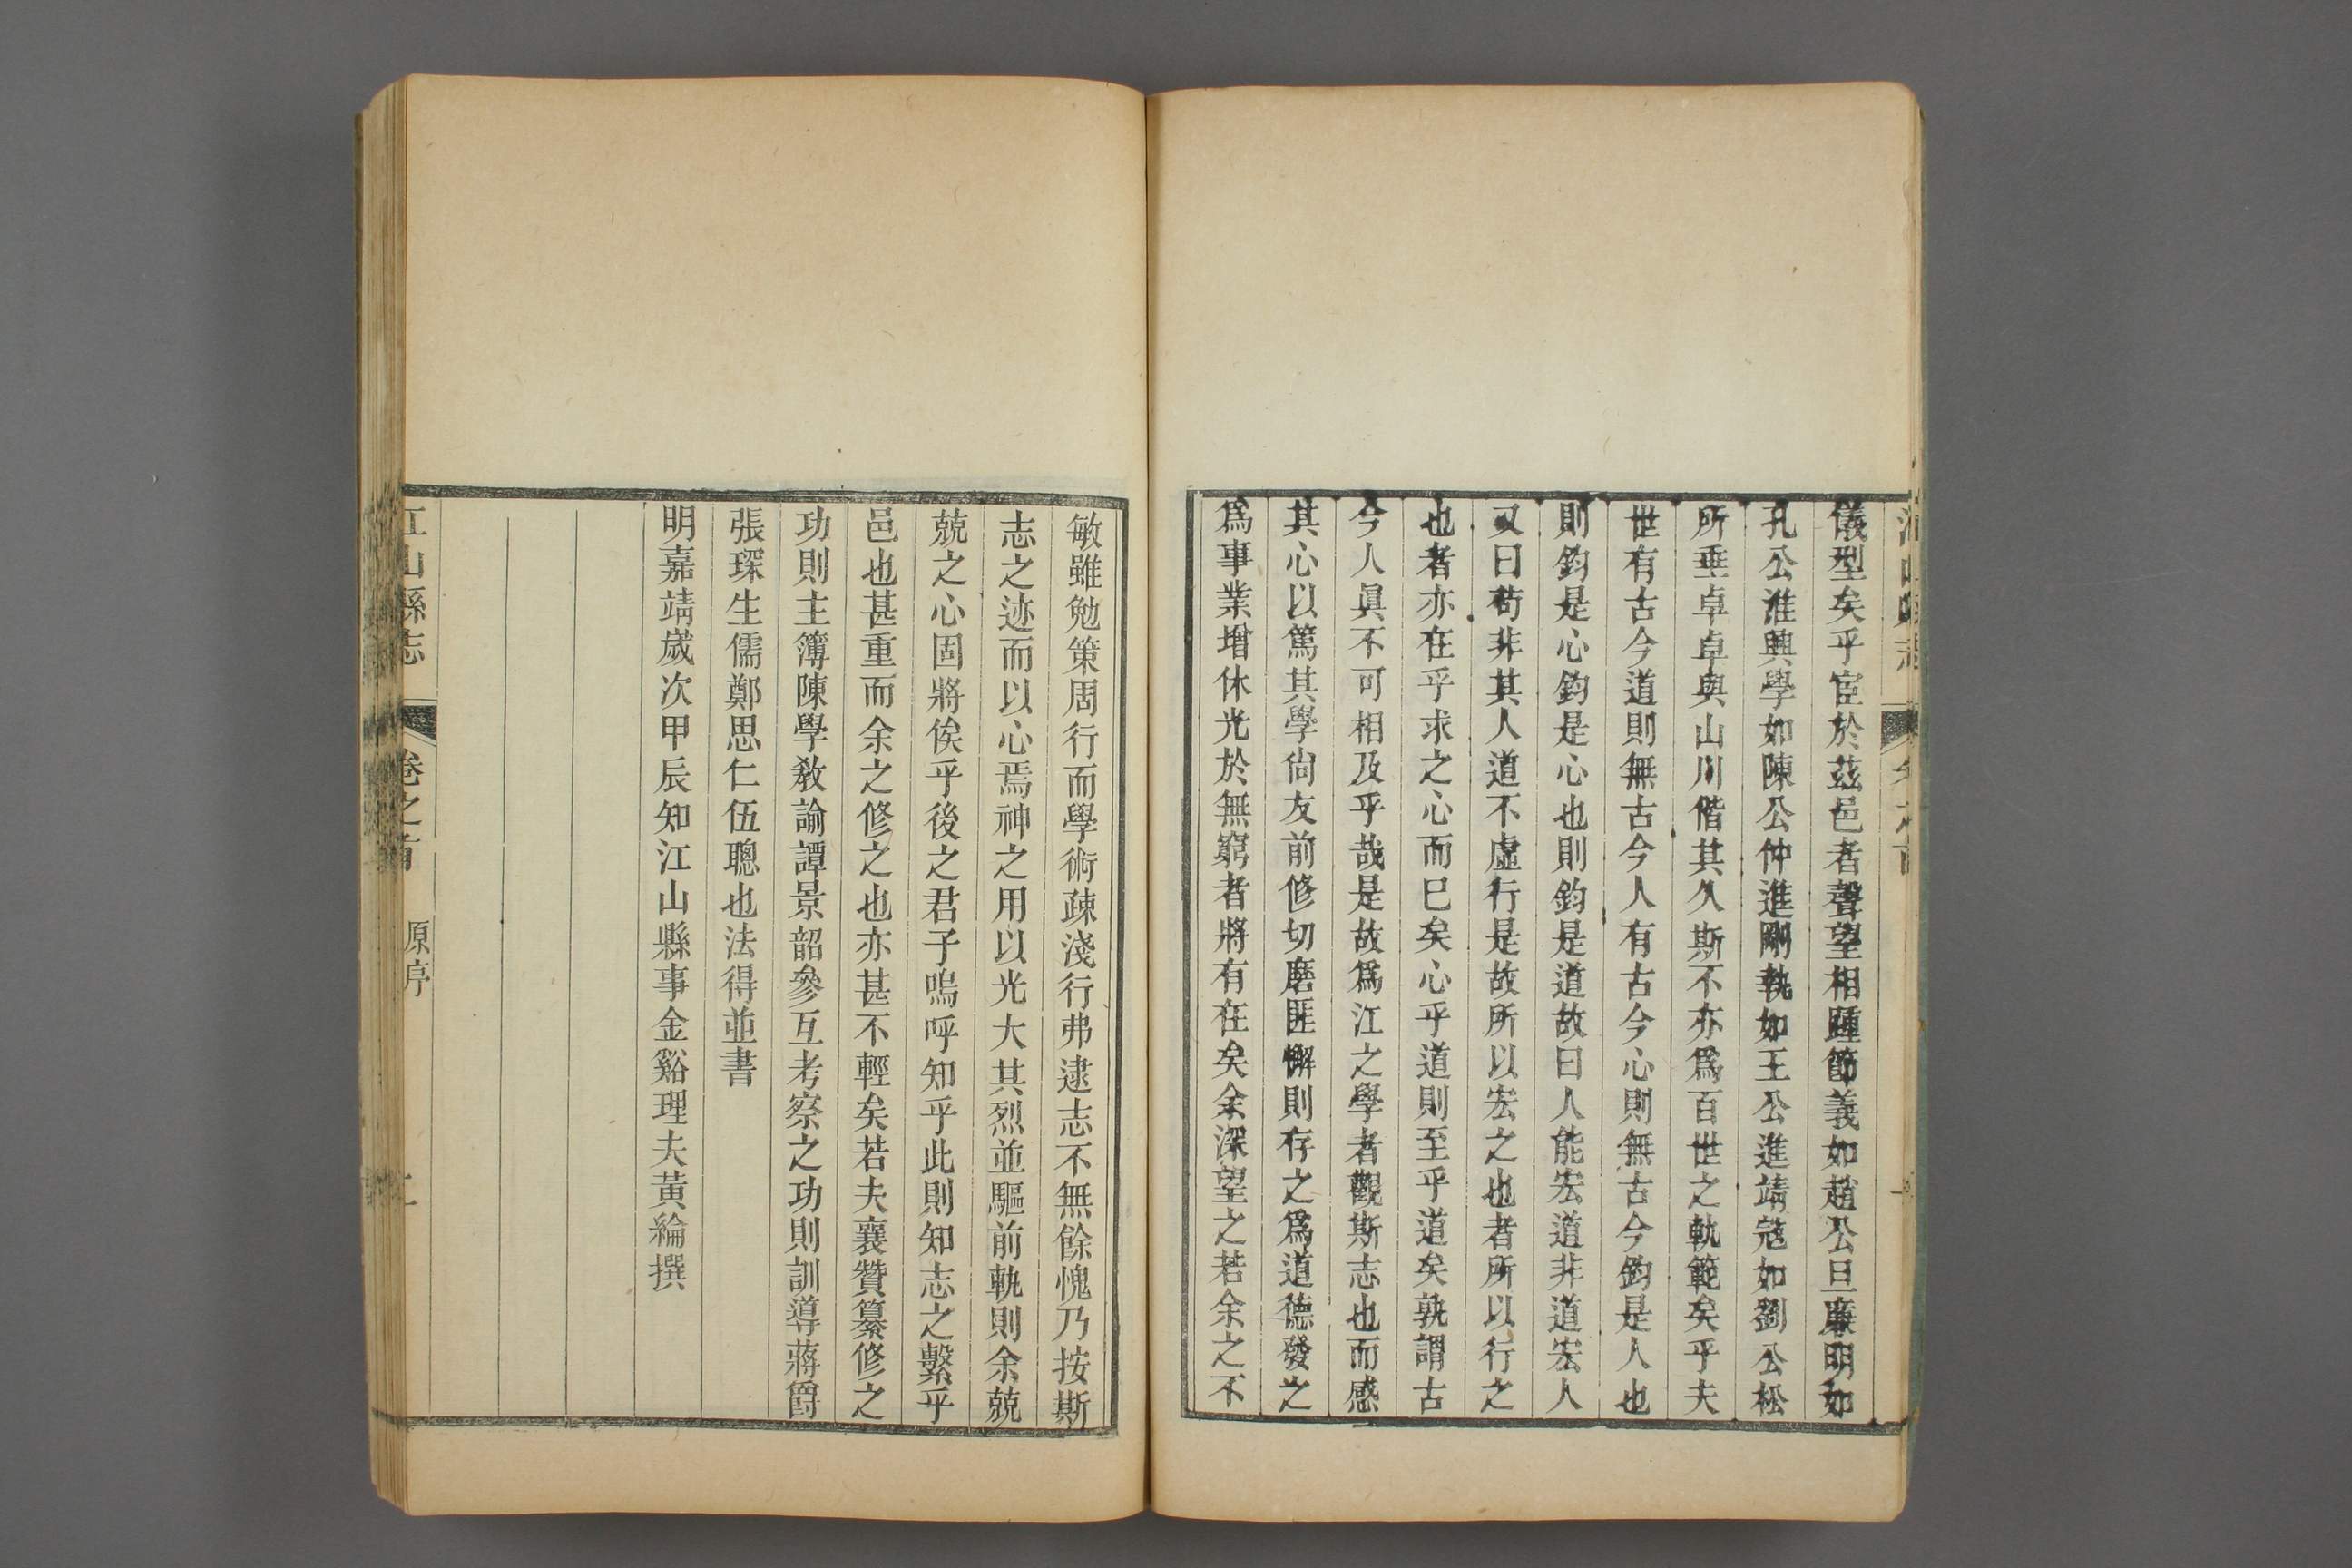 儀型矣乎宦於茲邑者聲望相踵節義如趙公旦廉明如
孔公淮興學如陳公仲進剛執如王公進靖寇如劉公松
所垂卓卓與山川偕其久斯不亦爲百世之軌範矣乎夫
世有古今道則無古今人有古今心則無古今鈞是人也
則鈞是心鈞是心也則鈞是道故曰人能宏道非道宏人
又曰苟非其人道不虛行是故所以宏之也者所以行之
也者亦在乎求之心而已矣心乎道則至乎道矣孰謂古
今人眞不可相及乎哉是故爲江之學者觀斯志也而感
其心以篤其學尙友前修切磨匪懈則存之爲道德發之
爲事業增休光於無窮者將有在矣余深望之若余之不
敏雖勉策周行而學術疎淺行弗逮志不無餘愧乃按斯
志之迹而以心焉神之用以光大其烈並驅前軌則余兢
兢之心固將俟乎後之君子嗚呼知乎此則知志之繫乎
邑也甚重而余之修之也亦甚不輕矣若夫襄贊纂修之
功則主簿陳學敎諭譚景韶參互考察之功則訓導蔣爵
張琛生儒鄭思仁伍聰也法得並書
明嘉靖歲次甲辰知江山縣事金谿理夫黃綸撰
江山縣志 卷之首 原序